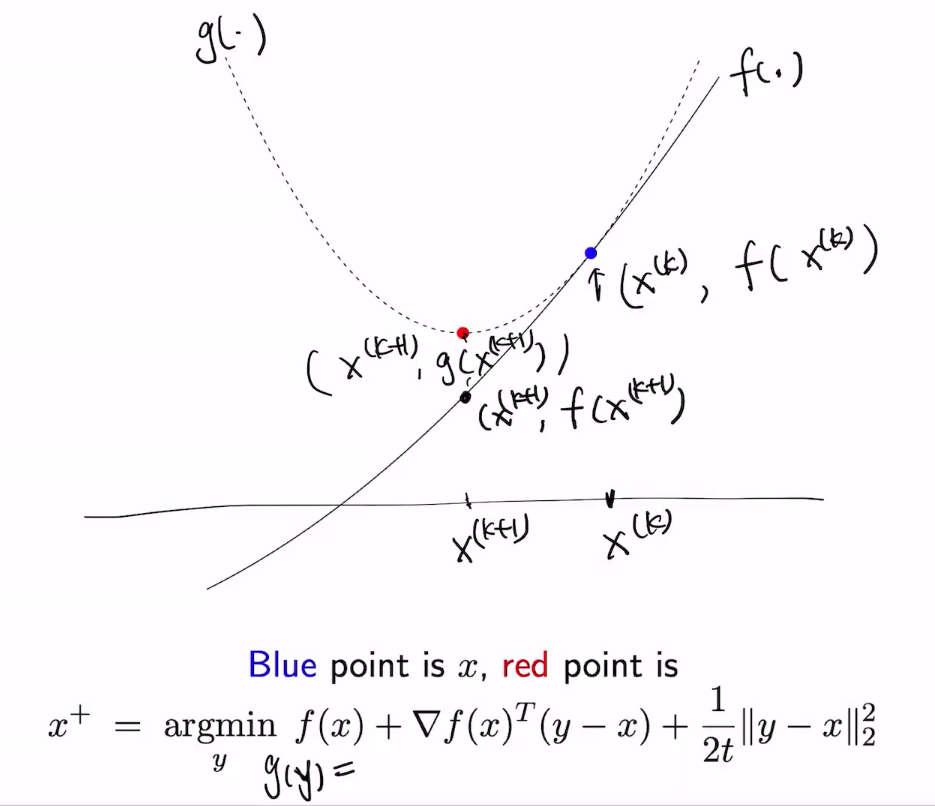 g(·)
f(·)
(x^{(k)}, f(x^{(k)})
(x^{(k+1)}, g(x^{(k+1)}))
(x^{(k+1)}, f(x^{(k+1)})
x^{(k+1)}
x^{(k)}
Blue point is x, red point is
x^+ = argmin_y f(x) + ∇f(x)^T(y − x) + \frac{1}{2t}‖y − x‖_2^2
g(y) =